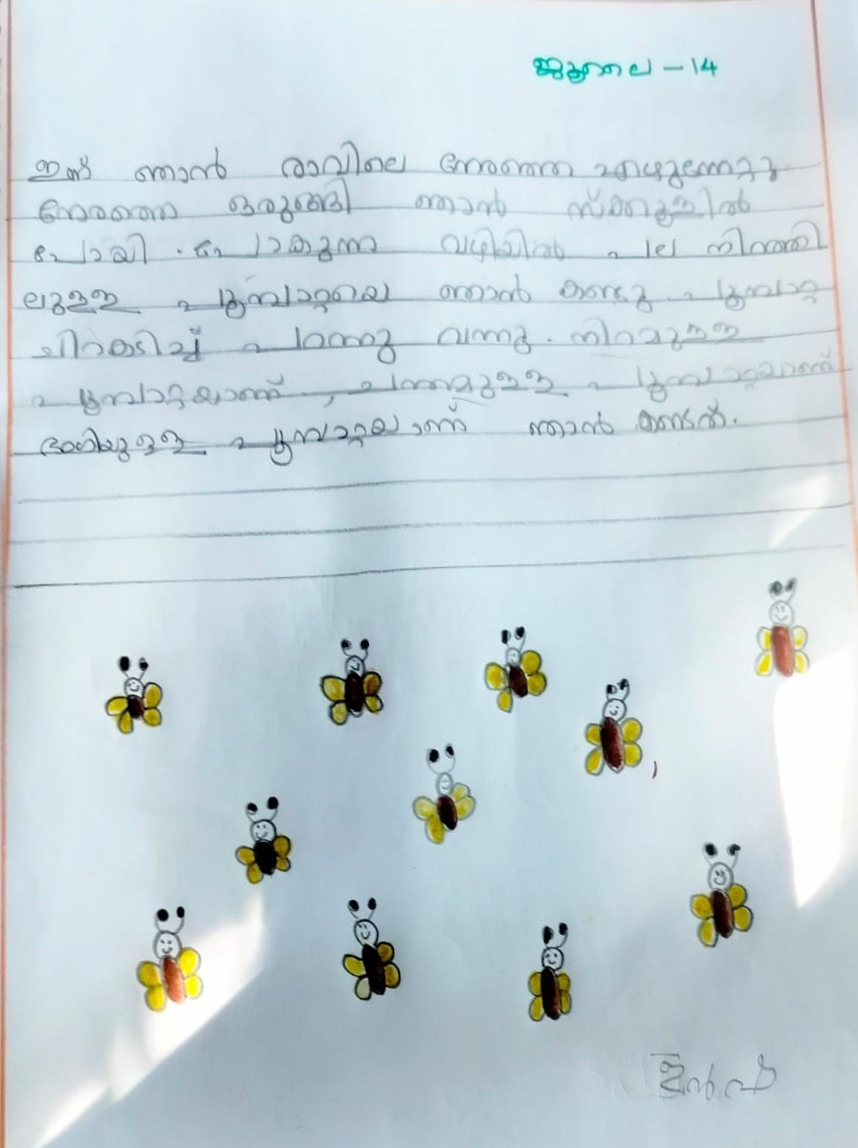 ജൂലൈ - 14
ഇന്ന് ഞാൻ രാവിലെ നേരത്തെ എഴുന്നേറ്റു
നേരത്തെ ഒരുങ്ങി ഞാൻ സ്ക്കൂളിൽ
പോയി . പോകുന്ന വഴിയിൽ പല നിറത്തി
ലുള്ള പൂമ്പാറ്റയെ ഞാൻ കണ്ടു . പൂമ്പാറ്റ
ചിറകടിച്ച് പറന്നു വന്നു . നിറമുള്ള
പൂമ്പാറ്റയാണ് , ചന്തമുള്ള പൂമ്പാറ്റയാണ്
ഭംഗിയുള്ള പൂമ്പാറ്റയാണ് ഞാൻ കണ്ടത്.